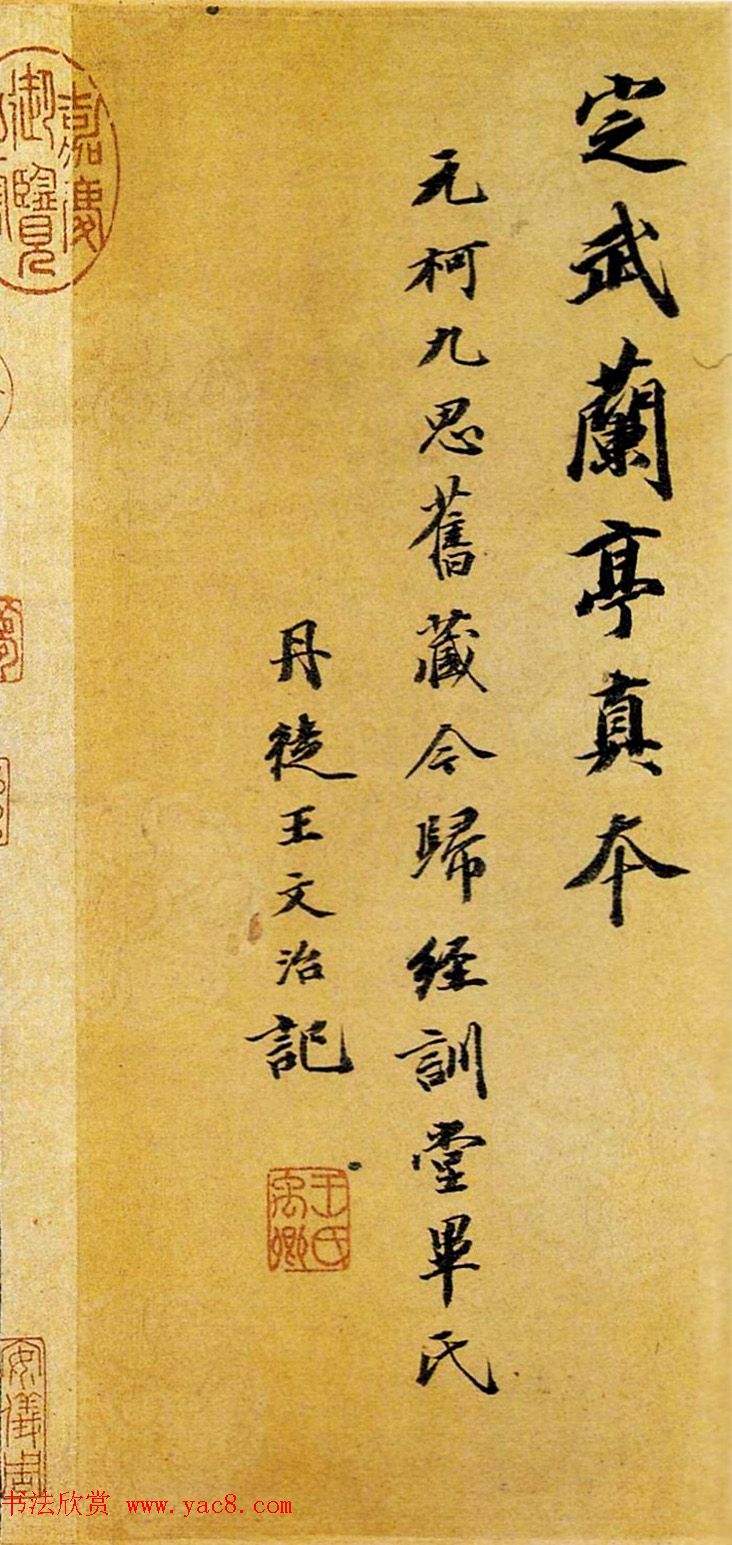 定武蘭亭真本
元柯九思舊藏今歸經訓堂畢氏
丹徒王文治記
王氏禹卿
嘉慶御覽
安儀周
书法欣赏 www.yac8.com